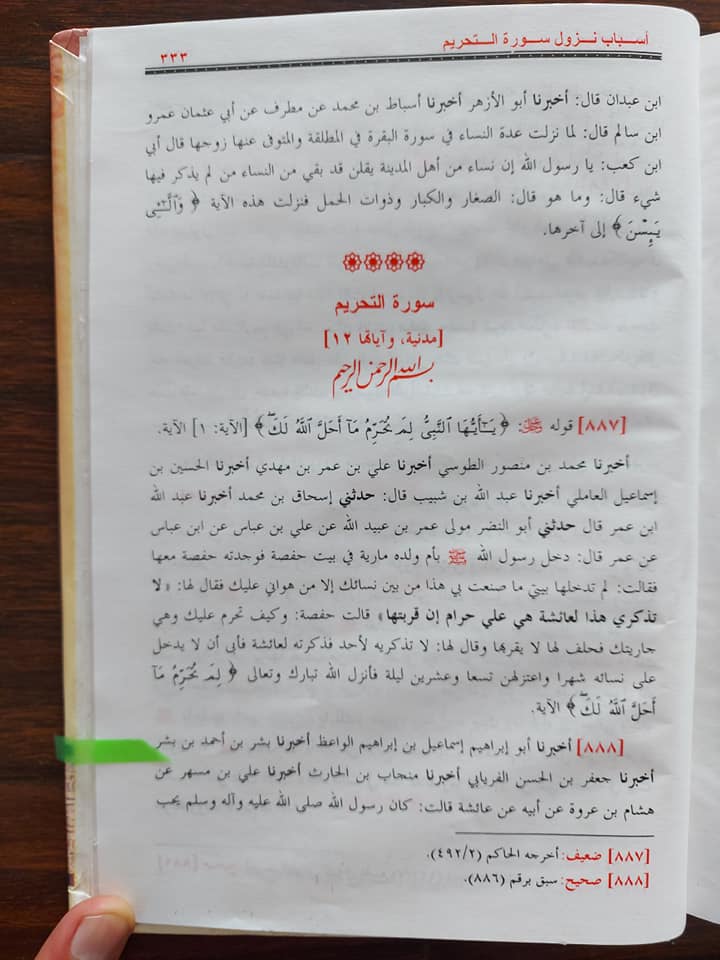 أسباب نزول سورة التحريم
٣٣٣
ابن عبدان قال: أخبرنا أبو الأزهر أخبرنا أسباط بن محمد عن مطرف عن أبي عثمان عمرو
ابن سالم قال: لما نزلت عدة النساء في سورة البقرة في المطلقة والمتوفى عنها زوجها قال أبي
ابن كعب: يا رسول الله إن نساء من أهل المدينة يقلن قد بقي من النساء من لم يذكر فيها
شيء قال: وما هو قال: الصغار والكبار وذوات الحمل فنزلت هذه الآية ﴿ وَٱلَّـٰٓـِٔى
يَئِسْنَ ﴾ إلى آخرها.
سورة التحريم
[مدنية، وآياتها ١٢]
بسم الله الرحمن الرحيم
[٨٨٧] قوله ﷻ: ﴿ يَـٰٓأَيُّهَا ٱلنَّبِىُّ لِمَ تُحَرِّمُ مَآ أَحَلَّ ٱللَّهُ لَكَ ۖ ﴾ [الآية: ١] الآية.
أخبرنا محمد بن منصور الطوسي أخبرنا علي بن عمر بن مهدي أخبرنا الحسين بن
إسماعيل العاملي أخبرنا عبد الله بن شبيب قال: حدثني إسحاق بن محمد أخبرنا عبد الله
ابن عمر قال حدثني أبو النضر مولى عمر بن عبيد الله عن علي بن عباس عن ابن عباس
عن عمر قال: دخل رسول الله ﷺ بأم ولده مارية في بيت حفصة فوجدته حفصة معها
فقالت: لم تدخلها بيتي ما صنعت بي هذا من بين نسائك إلا من هواني عليك فقال لها: «لا
تذكري هذا لعائشة هي علي حرام إن قربتها» قالت حفصة: وكيف تحرم عليك وهي
جاريتك فحلف لها لا يقربها وقال لها: لا تذكريه لأحد فذكرته لعائشة فأبى أن لا يدخل
على نسائه شهرا واعتزلهن تسعا وعشرين ليلة فأنزل الله تبارك وتعالى ﴿ لِمَ تُحَرِّمُ مَآ
أَحَلَّ ٱللَّهُ لَكَ ۖ ﴾ الآية.
[٨٨٨] أخبرنا أبو إبراهيم إسماعيل بن إبراهيم الواعظ أخبرنا بشر بن أحمد بن بشر
أخبرنا جعفر بن الحسن الفريابي أخبرنا منجاب بن الحارث أخبرنا علي بن مسهر عن
هشام بن عروة عن أبيه عن عائشة قالت: كان رسول الله صلى الله عليه وآله وسلم يحب
[٨٨٧] ضعيف: أخرجه الحاكم (٤٩٢/٢).
[٨٨٨] صحيح: سبق برقم (٨٨٦).